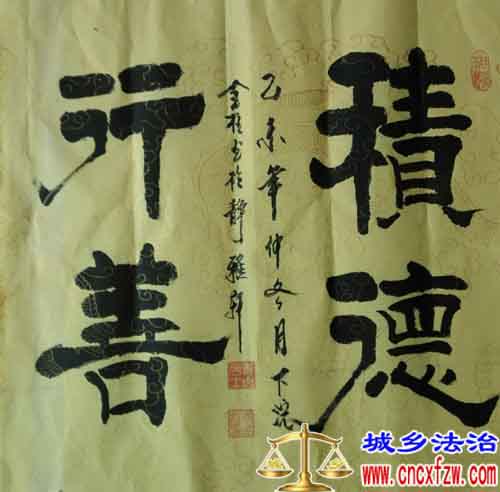 積德
行善
乙未年仲冬月下浣
金柱書於靜雅軒
城乡法治
www.cncxfzw.com